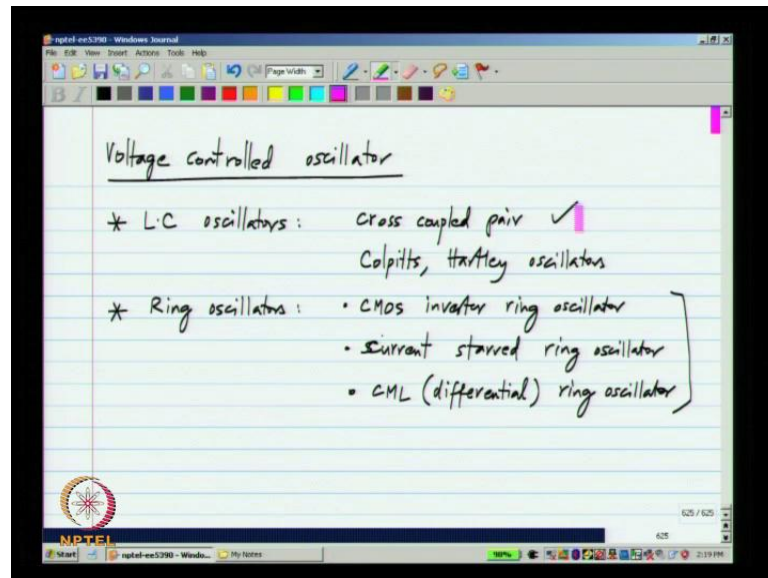 nptel-ee5390 - Windows Journal
File Edit View Insert Actions Tools Help
Page Width
B I
Voltage controlled oscillator
* L·C oscillators : cross coupled pair ✓
Colpitts, Hartley oscillators
* Ring oscillators : • CMOS inverter ring oscillator
• current starved ring oscillator
• CML (differential) ring oscillator
625 / 625
625
NPTEL
Start nptel-ee5390 - Windo... My Notes 98% 2:19 PM